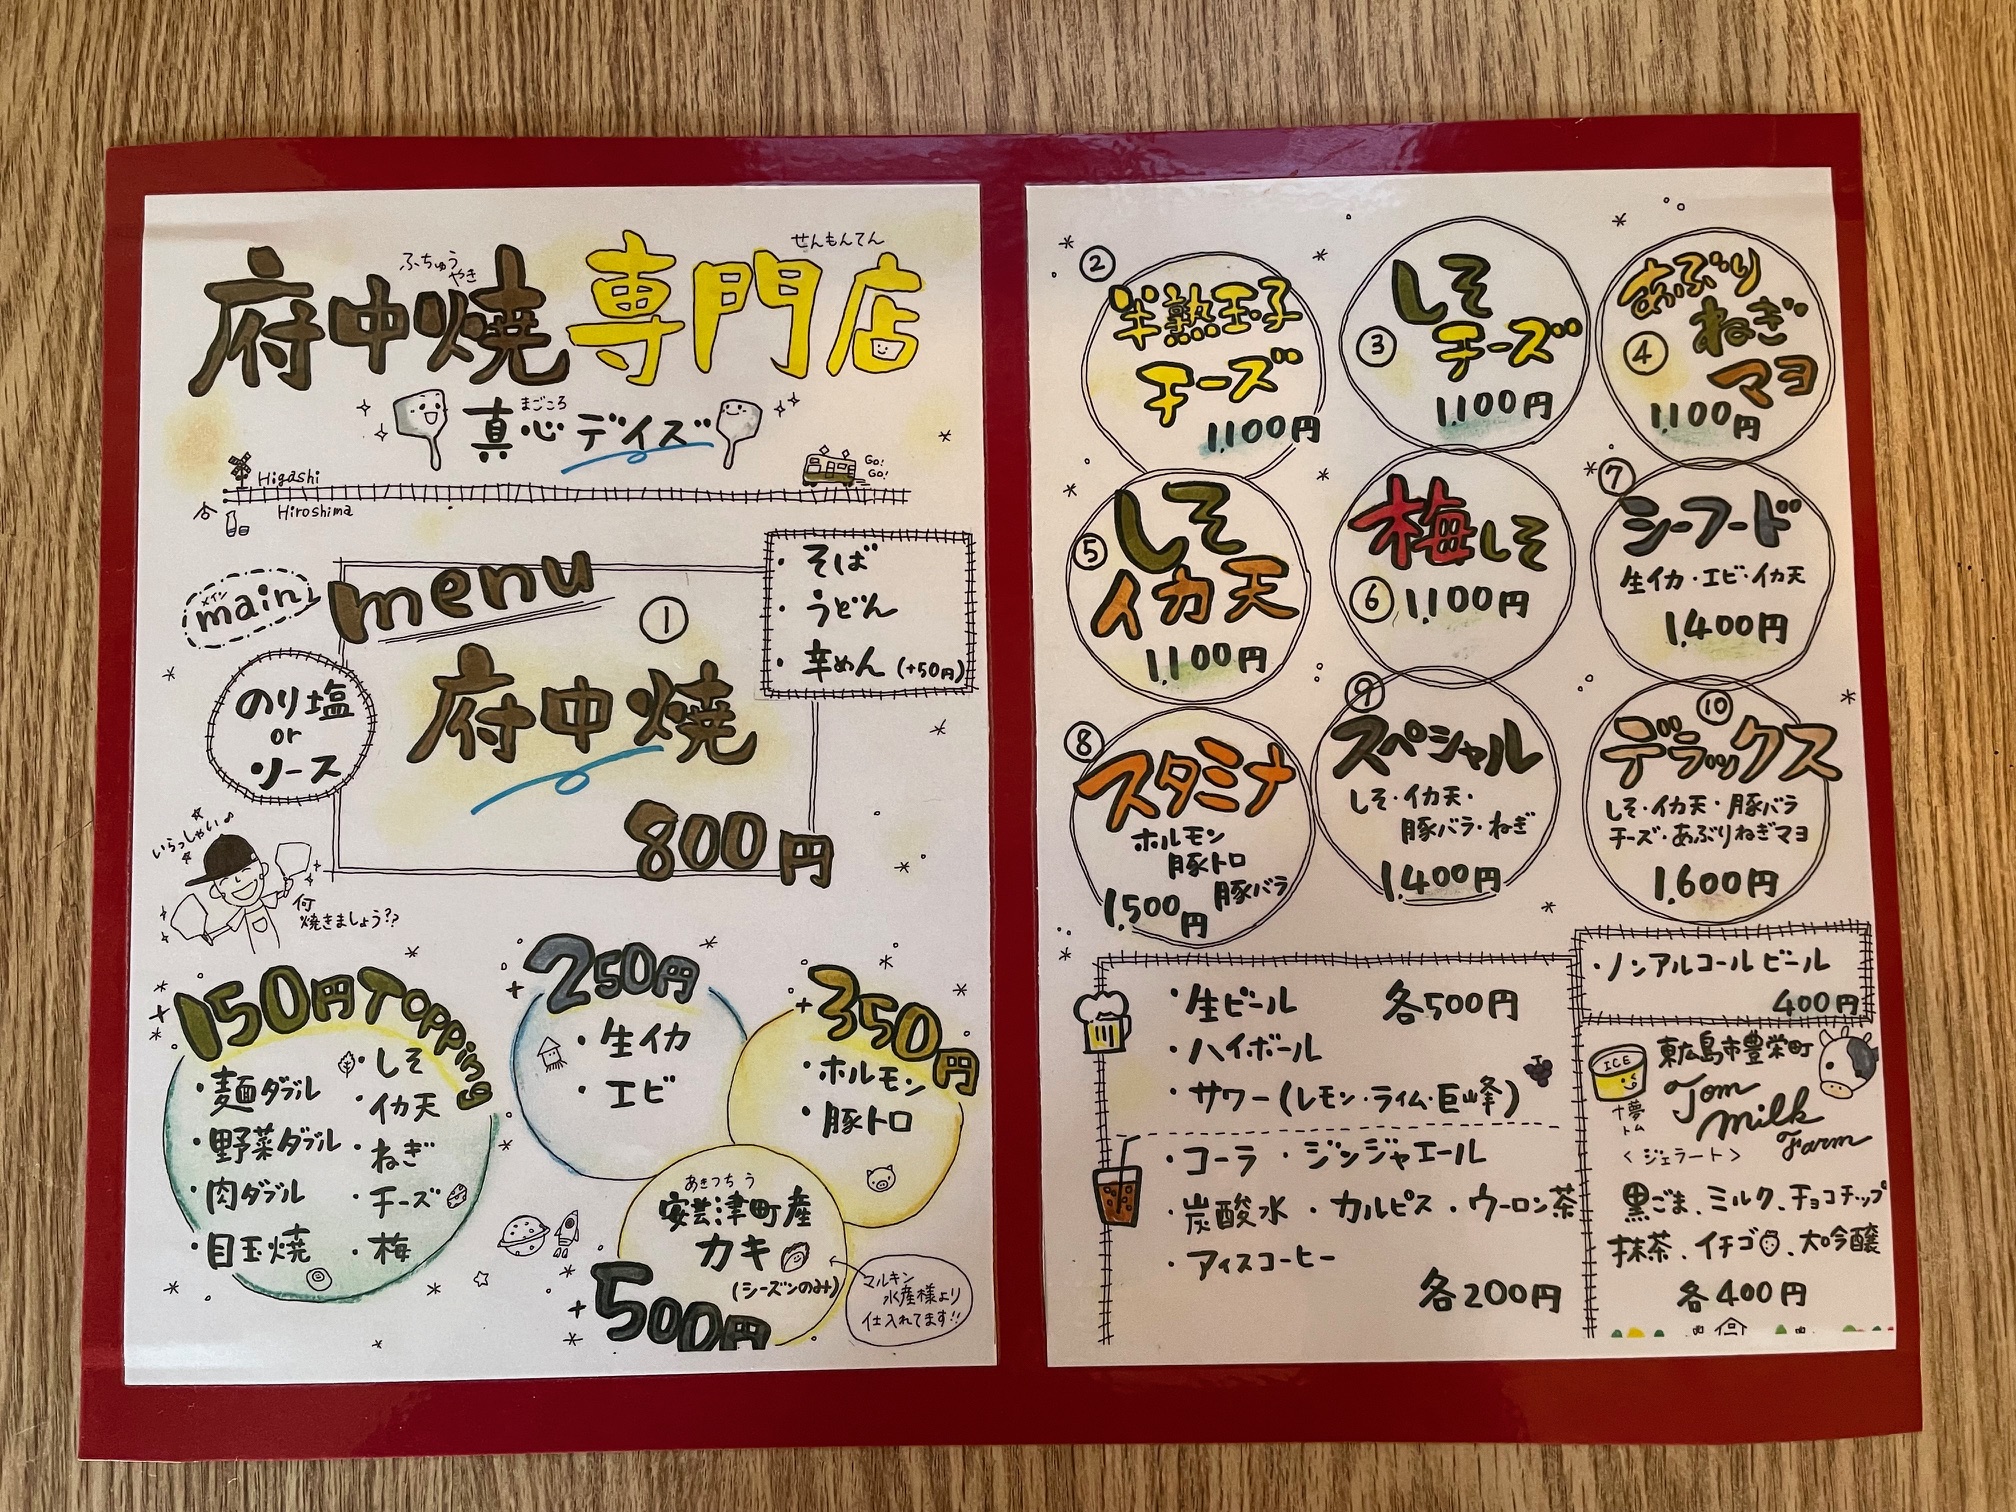 せんもんてん
ふちゅうやき
府中焼専門店
まごころ
真心デイズ
Higashi
Hiroshima
GO!
GO!
メイン
main
menu
・そば
・うどん
・辛めん (+50円)
①
府中焼
のり塩
or
ソース
800円
いらっしゃい♪
何
焼きましょう??
150円Topping
・麺ダブル
・野菜ダブル
・肉ダブル
・目玉焼
・しそ
・イカ天
・ねぎ
・チーズ
・梅
+250円
・生イカ
・エビ
+350円
・ホルモン
・豚トロ
あきつちょう
安芸津町産
カキ
(シーズンのみ)
+500円
マルキン
水産様より
仕入れてます!!
②
半熟玉子
チーズ
1,100円
③
しそ
チーズ
1,100円
④
あぶり
ねぎ
マヨ
1,100円
⑤
しそ
イカ天
1,100円
⑥
梅しそ
1,100円
⑦
シーフード
生イカ・エビ・イカ天
1,400円
⑧
スタミナ
ホルモン
豚トロ
豚バラ
1,500円
⑨
スペシャル
しそ・イカ天・
豚バラ・ねぎ
1,400円
⑩
デラックス
しそ・イカ天・豚バラ
チーズ・あぶりねぎマヨ
1,600円
・生ビール 各500円
・ハイボール
・サワー(レモン・ライム・巨峰)
・コーラ ・ジンジャエール
・炭酸水 ・カルピス ・ウーロン茶
・アイスコーヒー
各200円
・ノンアルコールビール
400円
ICE
東広島市豊栄町
十夢
トム
Tom
Milk
Farm
<ジェラート>
黒ごま、ミルク、チョコチップ
抹茶、イチゴ、大吟醸
各400円